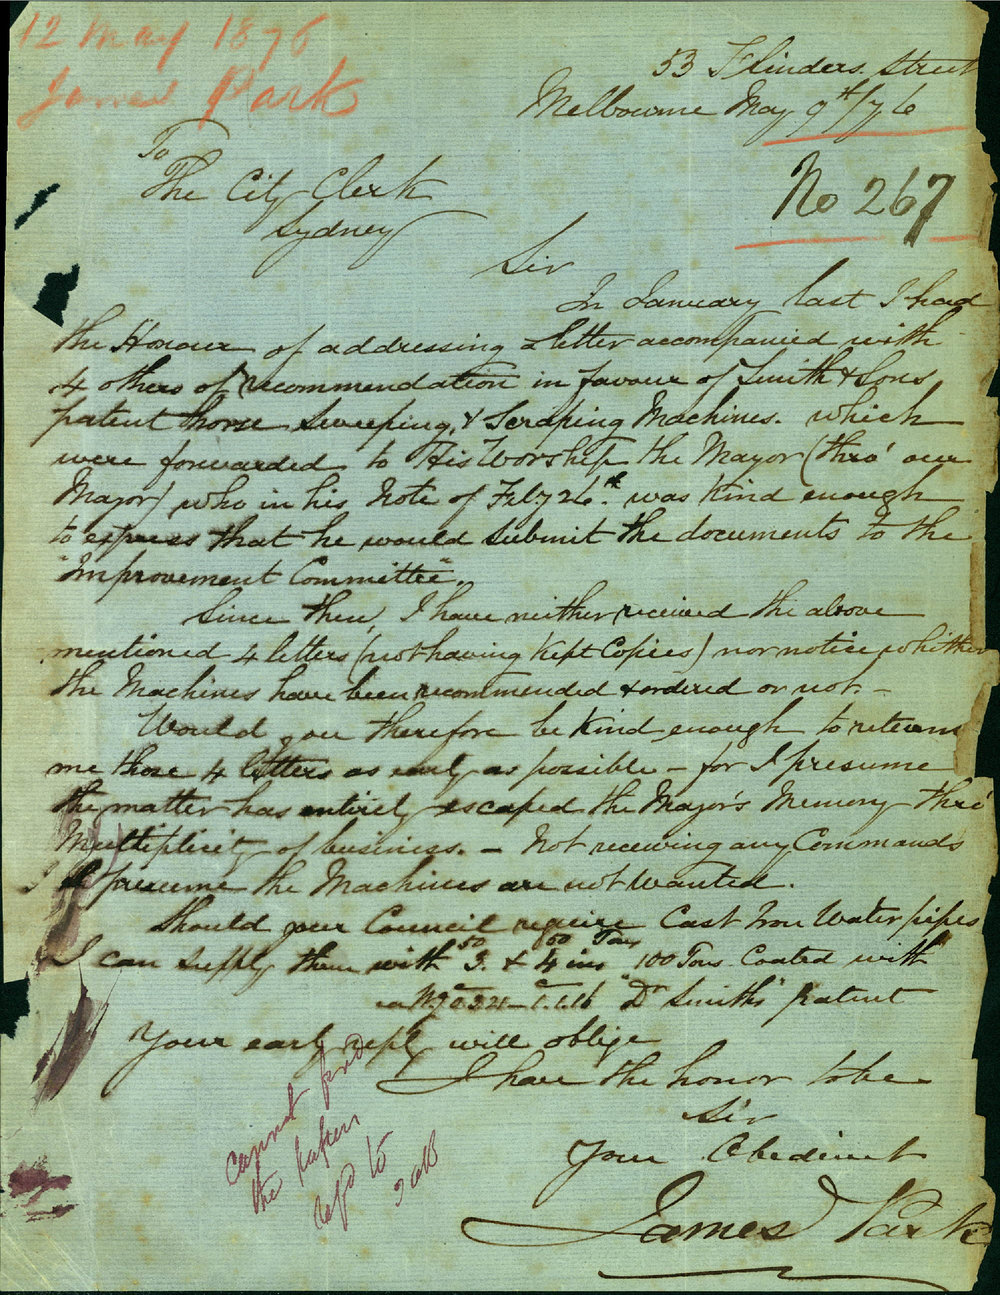 12 May 1876
James Park
53 Flinders Street
Melbourne May 9th/76
No 267
To
The City Clerk
Sydney
Sir
In January last I had
the Honour of addressing a letter accompanied with
4 others of recommendation in favour of Smith & Sons
patent horse Sweeping, & Scraping Machines. which
were forwarded to His Worship the Mayor (thro' our
Mayor) who in his Note of Feby 26th. was kind enough
to express that he would submit the documents to the
"Improvement Committee".
Since then, I have neither received the above
mentioned 4 letters (not having kept Copies) nor notice whither
the Machines have been recommended & ordered or not -
Would you therefore be kind enough to return
me those 4 letters as early as possible - for I presume
the matter has entirely escaped the Mayor's Memory thro'
Multiplicity of business. - Not receiving any Commands
I presume the Machines are not Wanted.
Should your Council require Cast Iron Water pipes
50 50 Tons
I can supply them with 3. & 4 ins 100 Tons Coated with
"Dr Smiths" patent
Your early reply will oblige
I have the honor to be
Sir
Your Obedient
James Park
cannot find
the papers